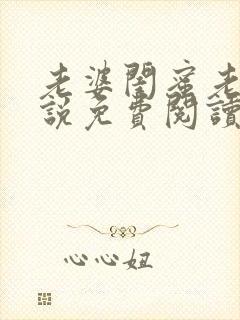 老婆閨蜜老
說免費閱讀
心心妞